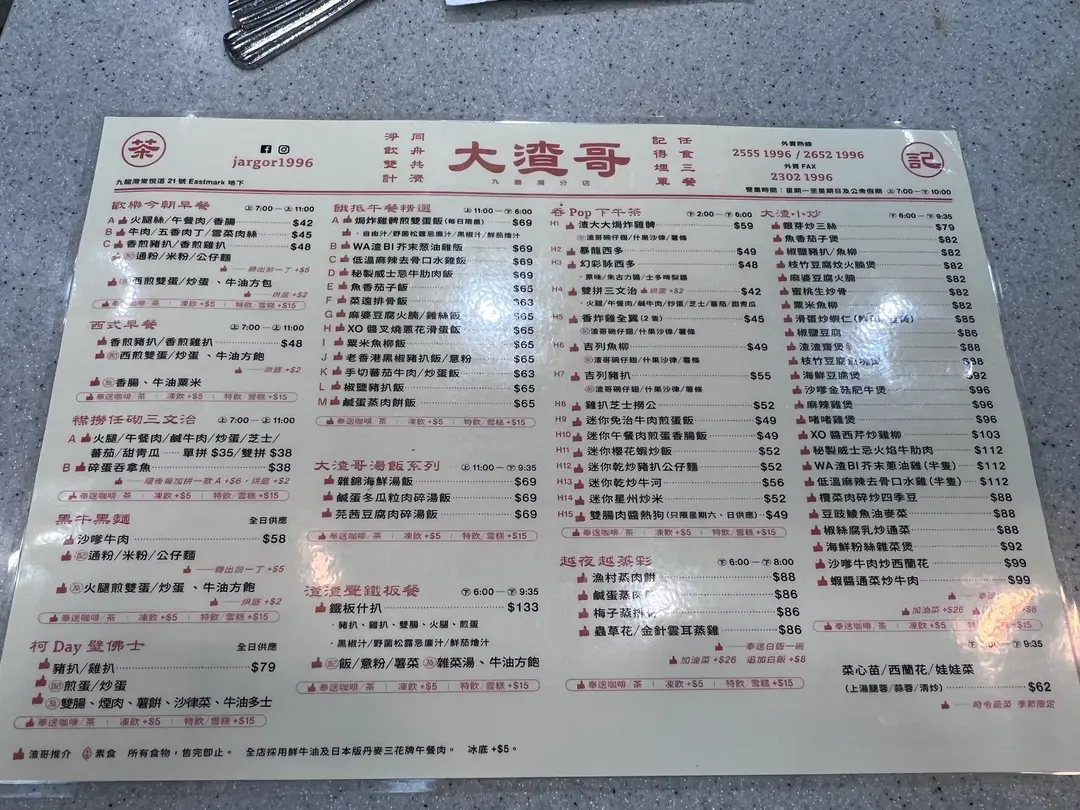 茶
jargor1996
九龍灣常悅道 21 號 Eastmark 地下
同舟共濟
淨飲雙計
大渣哥
九龍灣分店
任食三餐
記得埋單
外賣熱線
2555 1996 / 2652 1996
外賣 FAX
2302 1996
記
營業時間：星期一至星期日及公眾假期 上 7:00-下 10:00
歎樂今朝早餐 上 7:00-上 11:00
A 火腿絲/午餐肉/香腸 $42
B 牛肉/五香肉丁/雪菜肉絲 $45
C 香煎豬扒/香煎雞扒 $48
配 通粉/米粉/公仔麵
轉出前一丁 +$5
及 西煎雙蛋/炒蛋、牛油方包
烘底 +$2
奉送咖啡/茶 | 凍飲 +$5 | 特飲/雪糕 +$15
西式早餐 上 7:00-上 11:00
香煎豬扒/香煎雞扒 $48
配 西煎雙蛋/炒蛋、牛油方飽
烘底 +$2
及 香腸、牛油粟米
奉送咖啡/茶 | 凍飲 +$5 | 特飲/雪糕 +$15
襟撈任砌三文治 上 7:00-上 11:00
A 火腿/午餐肉/鹹牛肉/炒蛋/芝士/
蕃茄/甜青瓜 單拼 $35/雙拼 $38
B 碎蛋吞拿魚 $38
隨後每加拼一款 A +$6，烘底 +$2
奉送咖啡/茶 | 凍飲 +$5 | 特飲/雪糕 +$15
黑牛黑麵 全日供應
沙嗲牛肉 $58
配 通粉/米粉/公仔麵
轉出前一丁 +$5
及 火腿煎雙蛋/炒蛋、牛油方飽
烘底 +$2
奉送咖啡/茶 | 凍飲 +$5 | 特飲/雪糕 +$15
柯 Day 壁佛士 全日供應
豬扒/雞扒 $79
配 煎蛋/炒蛋
及 雙腸、煙肉、薯餅、沙律菜、牛油多士
奉送咖啡/茶 | 凍飲 +$5 | 特飲/雪糕 +$15
餓抵午餐精選 上 11:00-下 6:00
A 焗炸雞髀煎雙蛋飯(每日限量) $69
· 自由汁/野菌松露忌廉汁/黑椒汁/鮮茄燴汁
B WA渣BI芥末葱油雞飯 $69
C 低溫麻辣去骨口水雞飯 $69
D 秘製威士忌牛肋肉飯 $69
E 魚香茄子飯 $63
F 菜遠排骨飯 $63
G 麻婆豆腐火腩/雞絲飯 $65
H XO 醬叉燒蔥花滑蛋飯 $65
I 粟米魚柳飯 $65
J 老香港黑椒豬扒飯/意粉 $65
K 手切蕃茄牛肉/炒蛋飯 $63
L 椒鹽豬扒飯 $65
M 鹹蛋蒸肉餅飯 $65
奉送咖啡/茶 | 凍飲 +$5 | 特飲/雪糕 +$15
大渣哥湯飯系列 上 11:00-下 9:35
雜錦海鮮湯飯 $69
鹹蛋冬瓜粒肉碎湯飯 $69
芫茜豆腐肉碎湯飯 $69
奉送咖啡/茶 | 凍飲 +$5 | 特飲/雪糕 +$15
渣渣聲鐵板餐 下 6:00-下 9:35
鐵板什扒 $133
· 豬扒、雞扒、雙腸、火腿、煎蛋
· 黑椒汁/野菌松露忌廉汁/鮮茄燴汁
配 飯/意粉/薯菜 及 雜菜湯、牛油方飽
奉送咖啡/茶 | 凍飲 +$5 | 特飲/雪糕 +$15
吞 Pop 下午茶 下 2:00-下 6:00
H1 渣大大焗炸雞髀 $59
配 渣哥碗仔翅/什果沙律/薯條
H2 暴龍西多 $49
H3 幻彩詠西多 $48
· 原味/朱古力醬/士多啤梨醬
H4 雙拼三文治 烘底 +$2 $42
· 火腿/午餐肉/鹹牛肉/炒蛋/芝士/蕃茄/甜青瓜
H5 香炸雞全翼(2 隻) $45
配 渣哥碗仔翅/什果沙律/薯條
H6 吉列魚柳 $49
配 渣哥碗仔翅/什果沙律/薯條
H7 吉列豬扒 $55
配 渣哥碗仔翅/什果沙律/薯條
H8 雞扒芝士撈公 $52
H9 迷你免治牛肉煎蛋飯 $49
H10 迷你午餐肉煎蛋香腸飯 $49
H11 迷你櫻花蝦炒飯 $52
H12 迷你乾炒豬扒公仔麵 $52
H13 迷你乾炒牛河 $56
H14 迷你星州炒米 $52
H15 雙腸肉醬熱狗(只限星期六、日供應) $49
奉送咖啡/茶 | 凍飲 +$5 | 特飲/雪糕 +$15
越夜越蒸彩 下 6:00-下 8:00
漁村蒸肉餅 $88
鹹蛋蒸肉 $86
梅子蒸排 $86
蟲草花/金針雲耳蒸雞 $86
奉送白飯一碗
加油菜 +$26 追加白飯 +$8
奉送咖啡/茶 | 凍飲 +$5 | 特飲/雪糕 +$15
大渣小炒 下 6:00-下 9:35
銀芽炒三絲 $79
魚香茄子煲 $82
椒鹽豬扒/魚柳 $82
枝竹豆腐炆火腩煲 $82
麻婆豆腐火腩 $82
蜜桃生炒骨 $82
粟米魚柳 $82
滑蛋炒蝦仁 $85
椒鹽豆腐 $86
渣渣齋煲 $88
枝竹豆腐 $88
海鮮豆腐煲 $92
沙嗲金菇肥牛煲 $96
麻辣雞煲 $96
啫啫雞煲 $96
XO 醬西芹炒雞柳 $103
秘製威士忌火焰牛肋肉 $112
WA 渣BI 芥末葱油雞(半隻) $112
低溫麻辣去骨口水雞(半隻) $112
欖菜肉碎炒四季豆 $88
豆豉鯪魚油麥菜 $88
椒絲腐乳炒通菜 $88
海鮮粉絲雜菜煲 $92
沙嗲牛肉炒西蘭花 $99
蝦醬通菜炒牛肉 $99
奉送
加油菜 +$26 +$8
奉送咖啡/茶 | 凍飲 +$5 | 特飲/雪糕 +$15
:00-下 9:35
菜心苗/西蘭花/娃娃菜
(上湯腿蓉/蒜蓉/清炒) $62
時令蔬菜 季節限定
渣哥推介 素食 所有食物，售完即止。 全店採用鮮牛油及日本版丹麥三花牌午餐肉。 冰底 +$5。